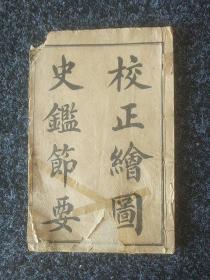 校正繪圖
史鑑節要